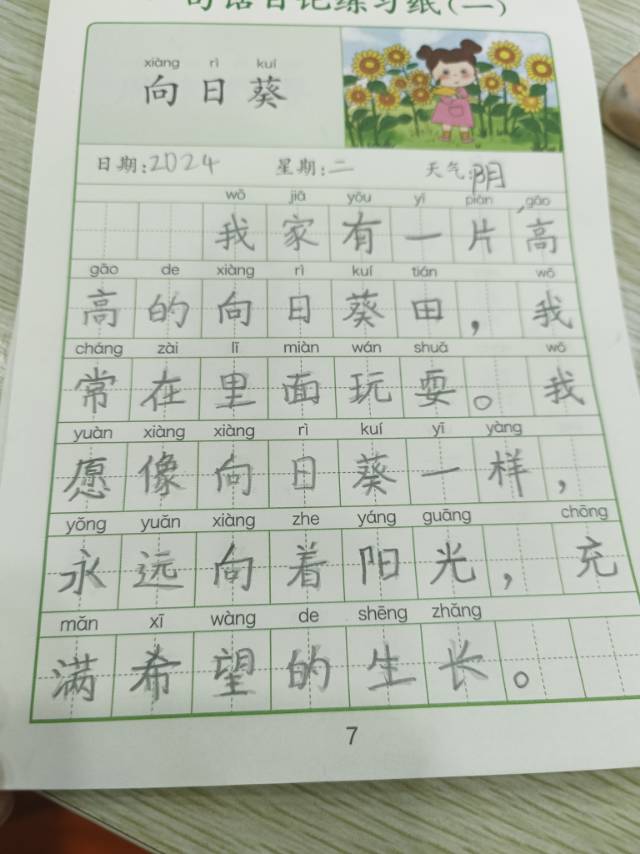 句话日记练习纸(一)
xiàng rì kuí
向日葵
日期:2024 星期:二 天气:阴
wǒ jiā yǒu yī piàn gāo
我家有一片高
gāo de xiàng rì kuí tián wǒ
高的向日葵田，我
cháng zài lǐ miàn wán shuǎ wǒ
常在里面玩耍。我
yuàn xiàng xiàng rì kuí yī yàng
愿像向日葵一样，
yǒng yuǎn xiàng zhe yáng guāng chōng
永远向着阳光，充
mǎn xī wàng de shēng zhǎng
满希望的生长。
7